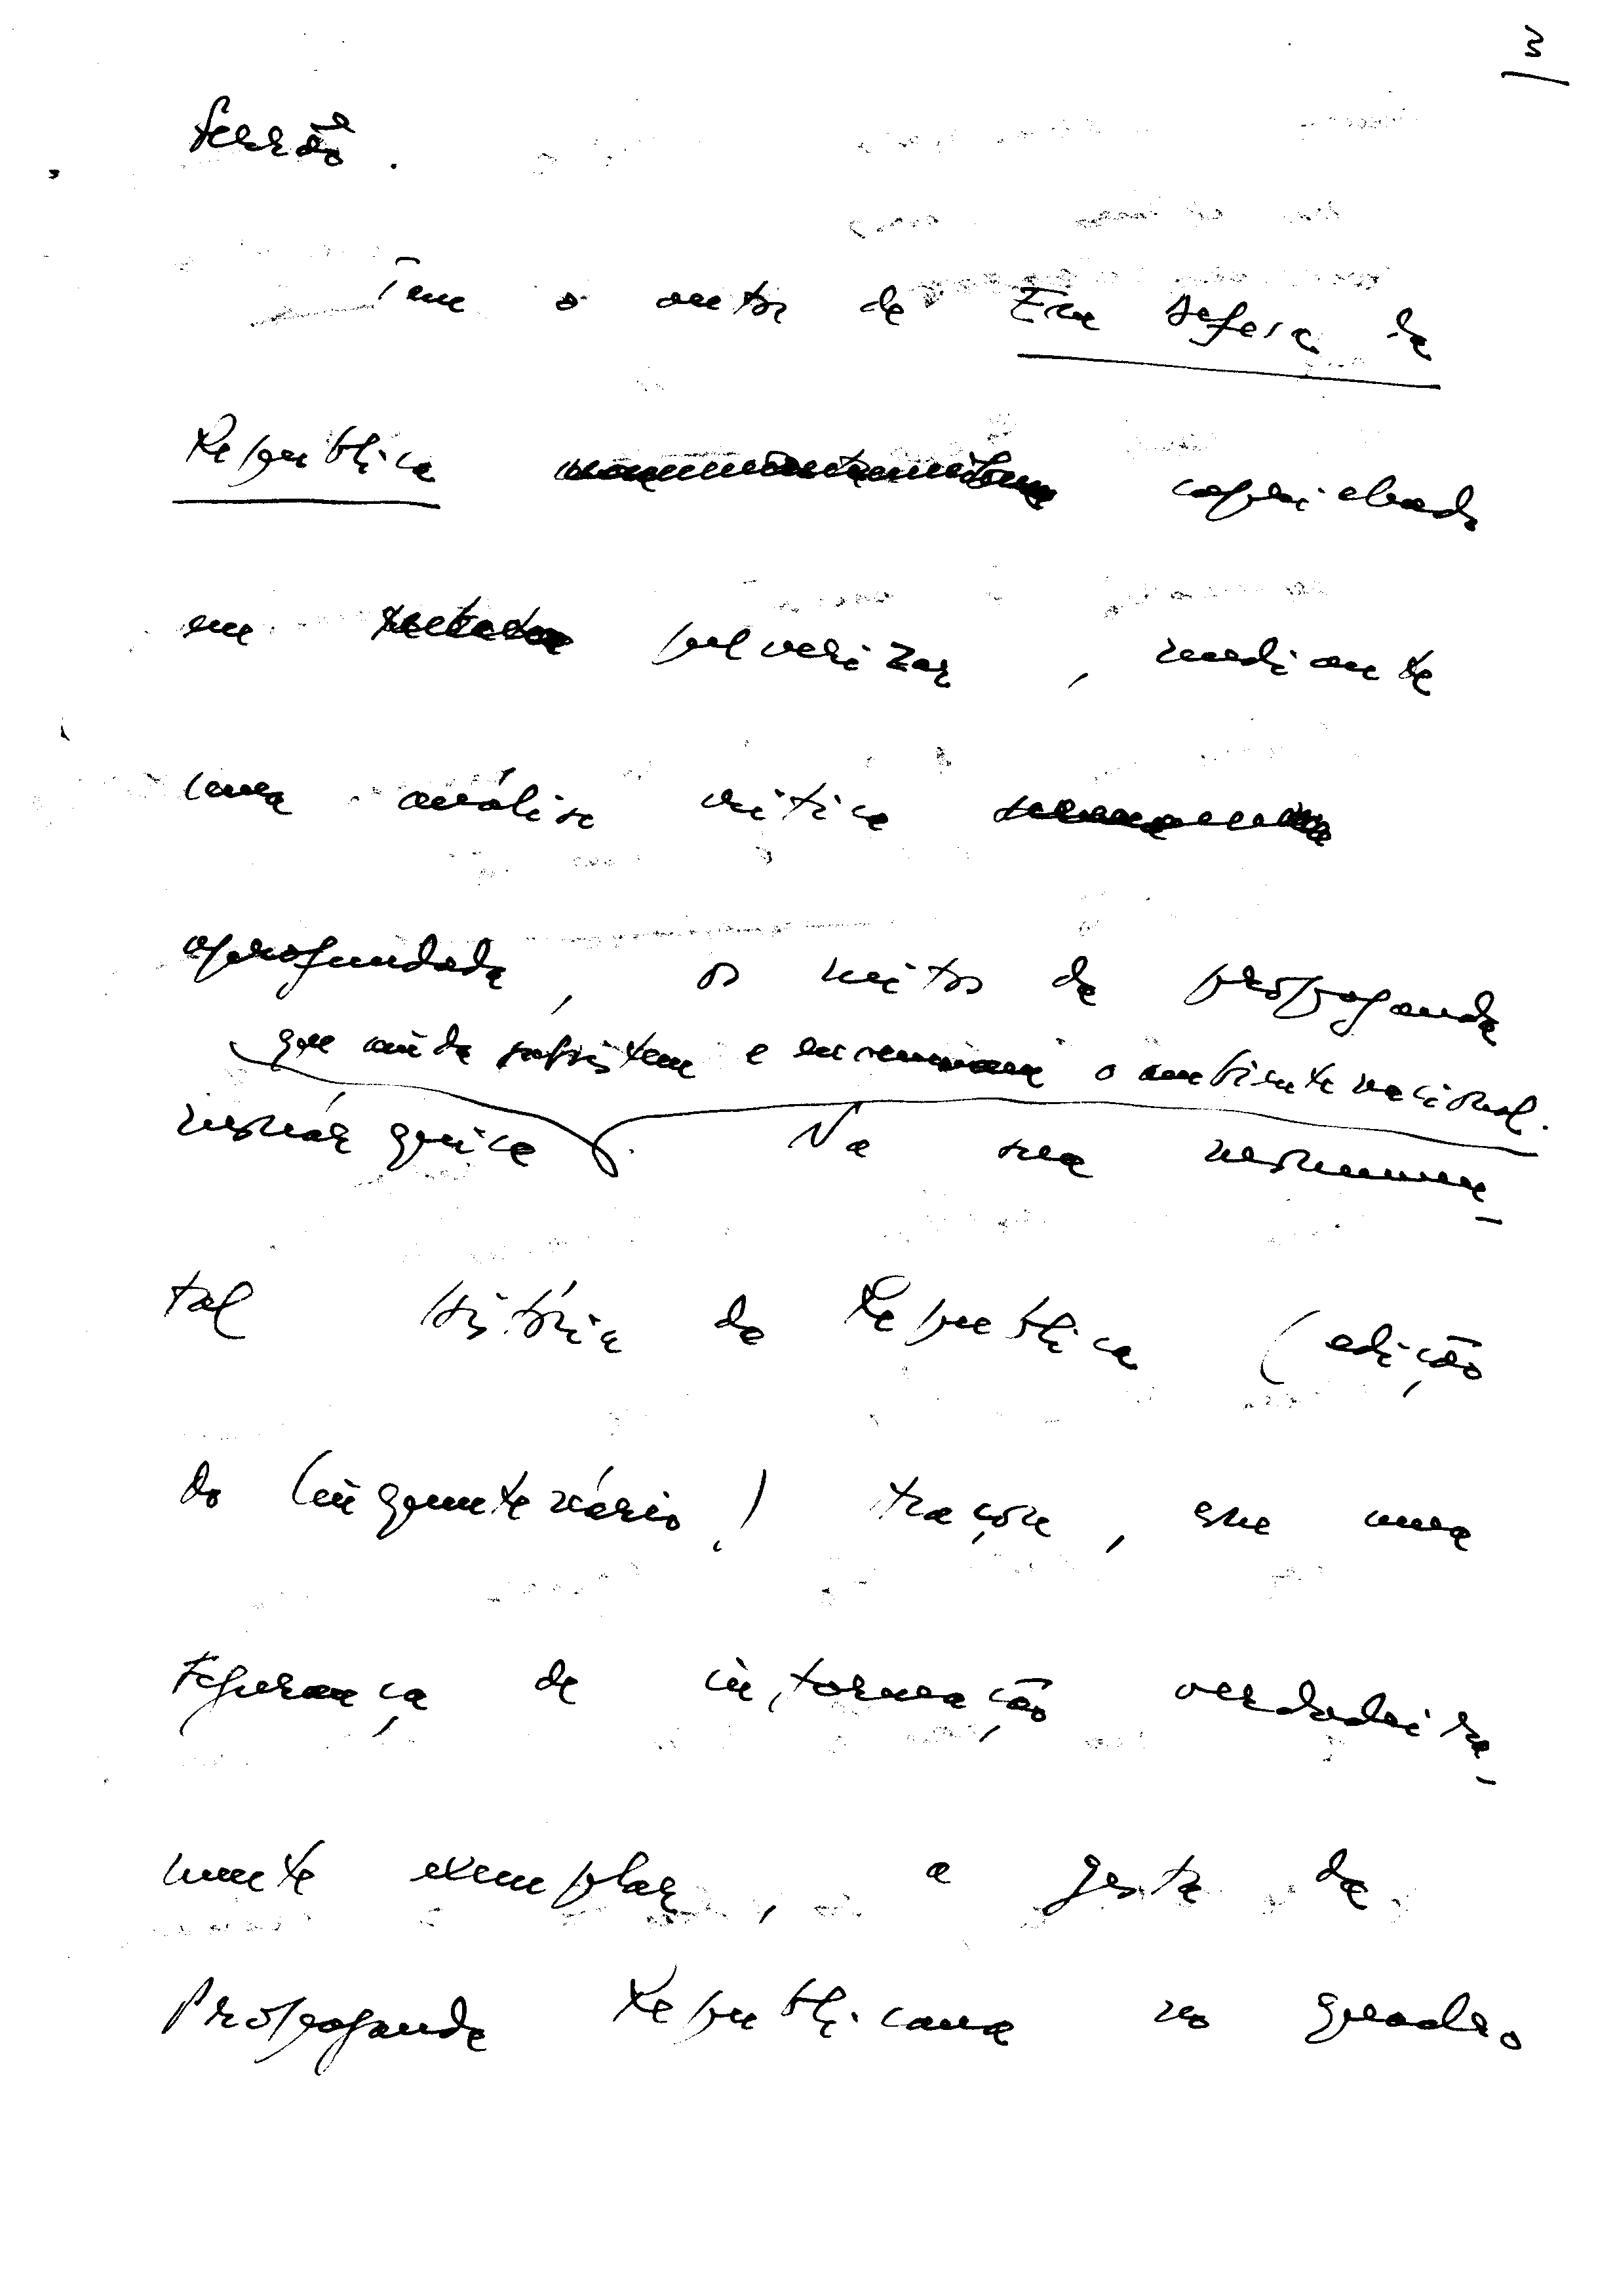 3
serão.
Tem o autor de Em defesa da
República caprichado
em pulverizar, mediante
uma análise crítica
aprofundada, os mitos da propaganda
que ainda subsistem e o ambiente nacional.
monárquica. Na sua monumen-
tal história da República (edição
do Cinquentenário!) traçou, com uma
segurança de informação verdadeira-
mente exemplar, a gesta da
Propaganda Republicana no quadro